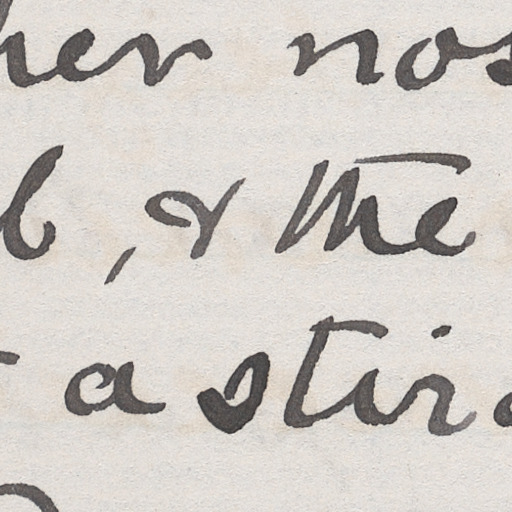 her nos
b, & the
a stir